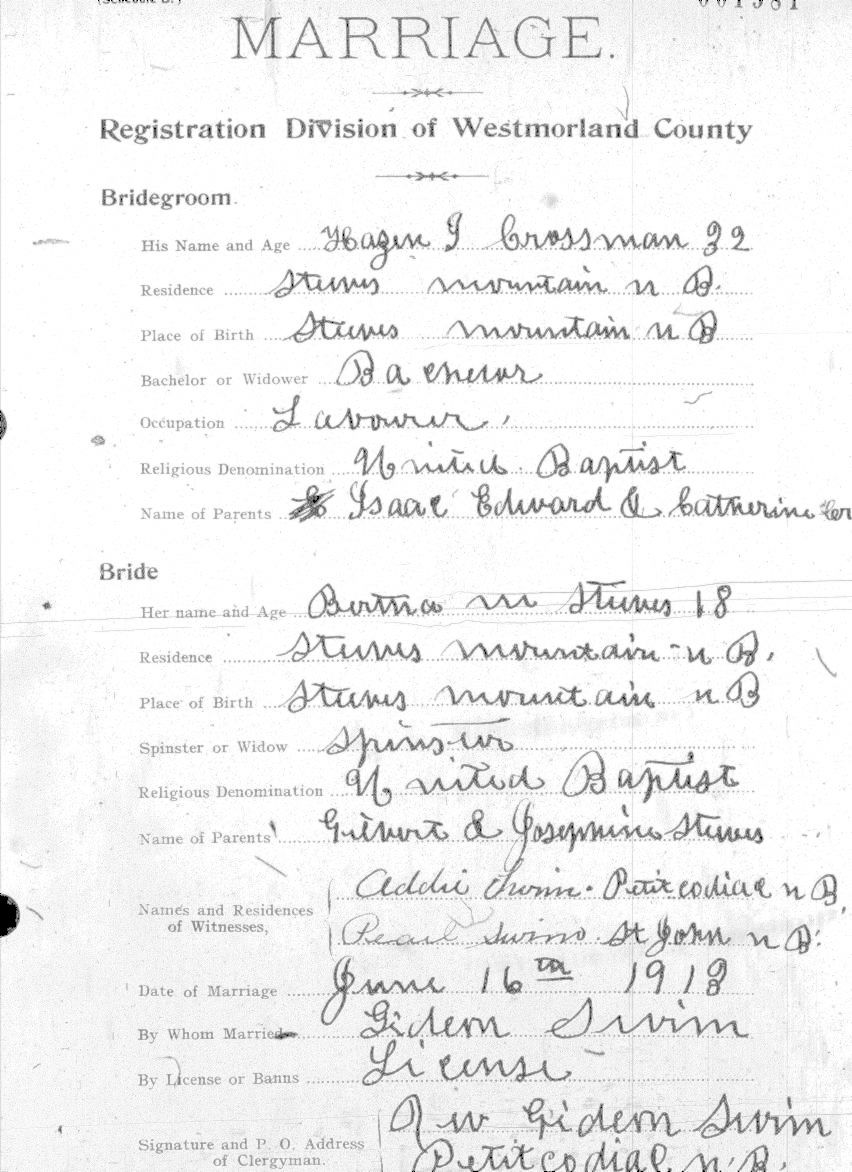 (Schedule B.)
001581
MARRIAGE.
Registration Division of Westmorland County
Bridegroom.
His Name and Age Hazen I Crossman 32
Residence Steeves mountain n B.
Place of Birth Steeves mountain n B
Bachelor or Widower Bachelor
Occupation Labourer
Religious Denomination United Baptist
Name of Parents Isaac Edward & Catherine Cr
Bride
Her name and Age Bertha M Steeves 18
Residence Steeves mountain n B.
Place of Birth Steeves mountain n B
Spinster or Widow Spinster
Religious Denomination United Baptist
Name of Parents Gilbert & Josephine Steeves
Names and Residences of Witnesses, Addie Swim. Petitcodiac n B,
Pearl Swim St John n B.
Date of Marriage June 16th 1918
By Whom Married Gideon Swim
By License or Banns License
Signature and P. O. Address of Clergyman. Rev Gideon Swim
Petitcodiac n.B.